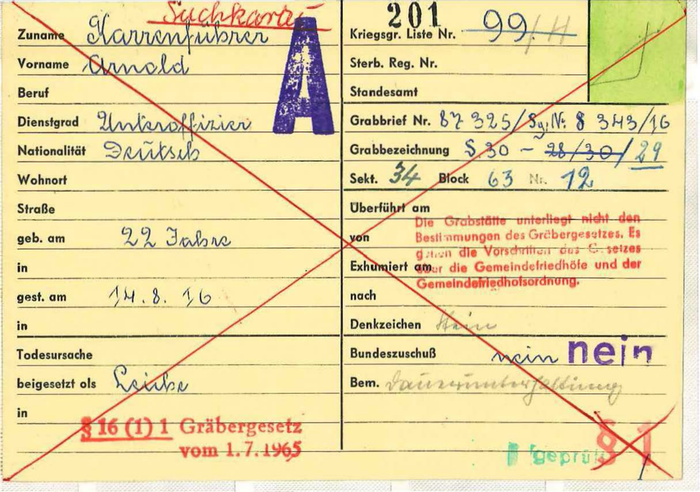 Suchkartei
Zuname Karrenführer
Vorname Arnold
Beruf
Dienstgrad Unteroffizier
Nationalität Deutsch
Wohnort
Straße
geb. am 22 Jahre
in
gest. am 14.8.16
in
Todesursache
beigesetzt als Leiche
in
§ 16 (1) 1 Gräbergesetz
vom 1.7.1965
A
201
Kriegsgr. Liste Nr. 99/H
Sterb. Reg. Nr.
Standesamt
Grabbrief Nr. 87325/Sg. Nr. 8 343/16
Grabbezeichnung S.30 - 28/30/29
Sekt. 34 Block 63 Nr. 12
Überführt am
von
Exhumiert am
nach
Die Grabstätte unterliegt nicht den
Bestimmungen des Gräbergesetzes. Es
gehen die Vorschriften des Gesetzes
über die Gemeindefriedhöfe und der
Gemeindefriedhofsordnung.
Denkzeichen Stein
Bundeszuschuß nein nein
Bem. Dauerunterhaltung
geprüft
§ 1